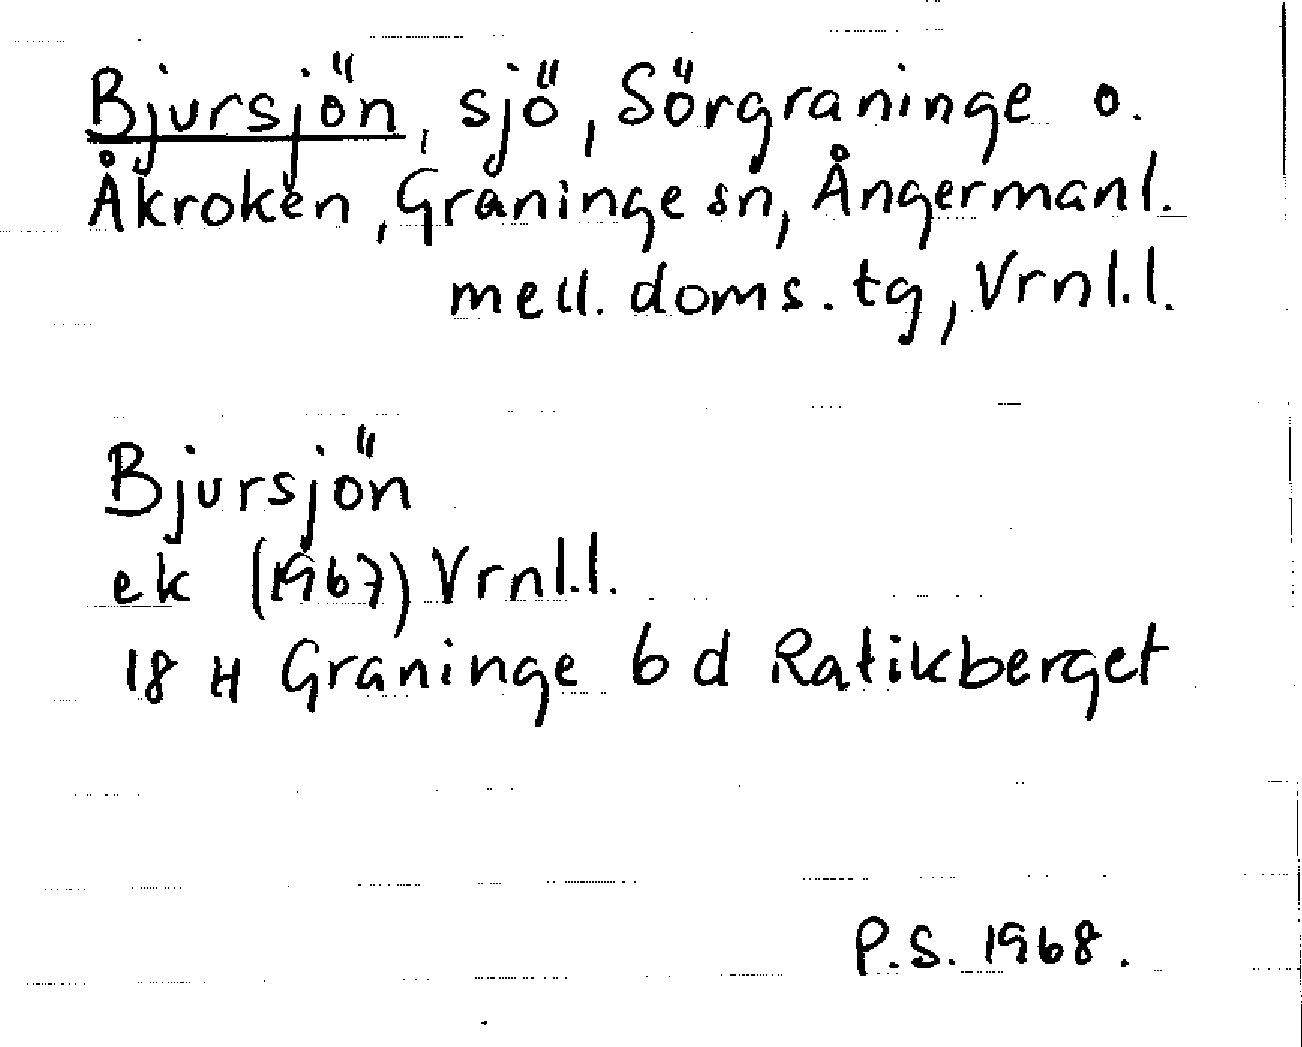 Bjursjön, sjö, Sörgraninge o.
Åkroken, Graninge sn, Ångermanl.
mell. doms. tg, Vrnl.l.
Bjursjön
ek (1967) Vrnl.l.
18 H Graninge 6 d Ratikberget
P.S. 1968.